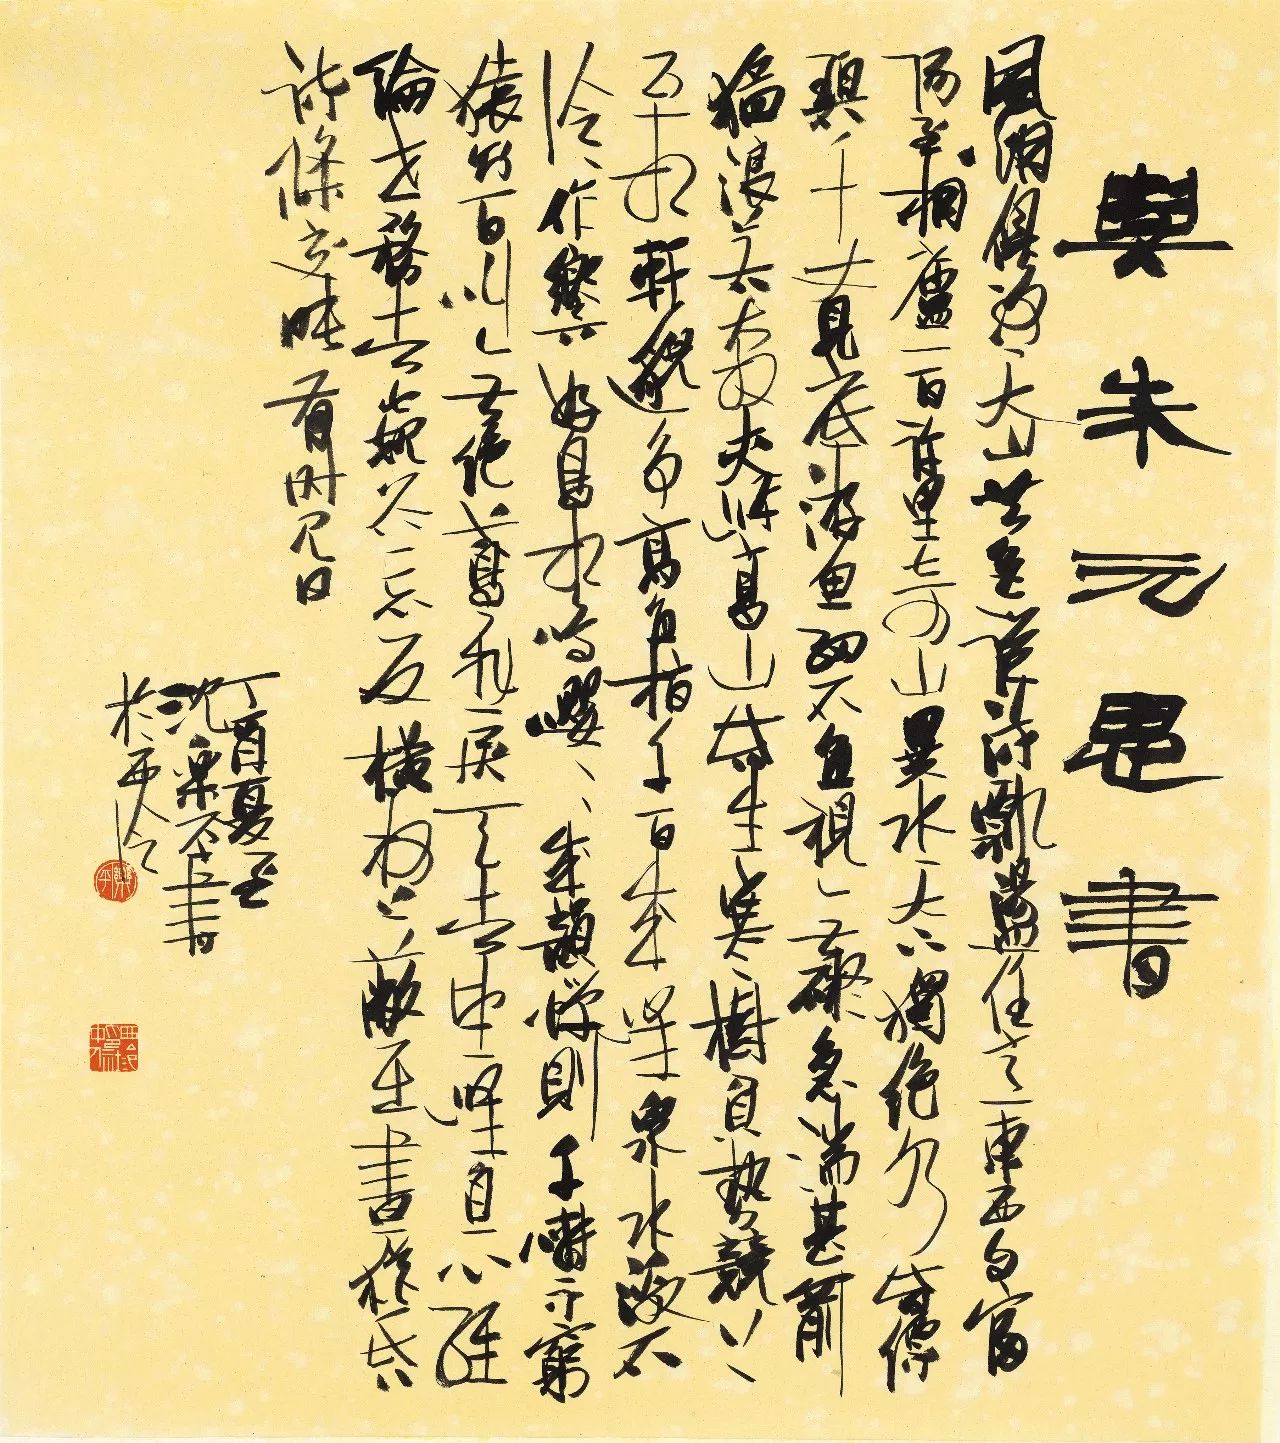 與朱元思書
風烟俱淨天山共色從流飄蕩任意東西自富
陽至桐廬一百許里奇山異水天下獨絕水皆縹
碧千丈見底游魚細石直視無礙急湍甚箭
猛浪若奔夾岸高山皆生寒樹負勢競上
互相軒邈爭高直指千百成峰泉水激石
泠泠作響好鳥相鳴嚶嚶成韻蟬則千囀不窮
猿則百叫無絕鳶飛戾天者望峰息心經
綸世務者窺谷忘反橫柯上蔽在晝猶昏
疏條交映有時見日
丁酉夏至
沈樂平書
於西泠